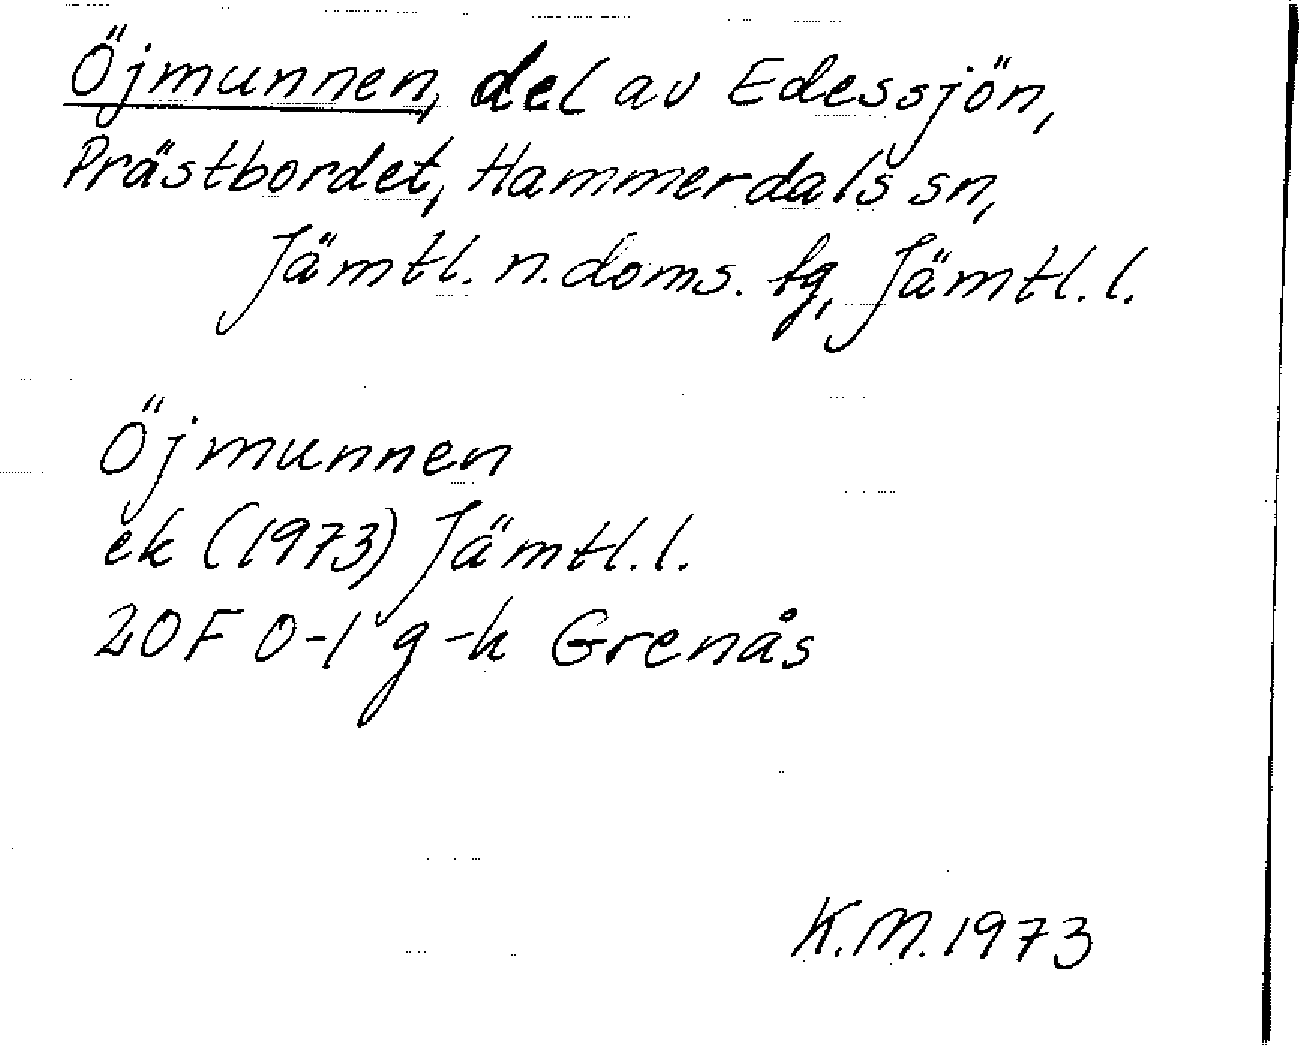 Öjmunnen, del av Edessjön,
Prästbordet, Hammerdals sn,
Jämtl. n. doms. fg, Jämtl. l.
Öjmunnen
ek (1973) Jämtl. l.
20F 0-1 g-h Grenås
K.M. 1973